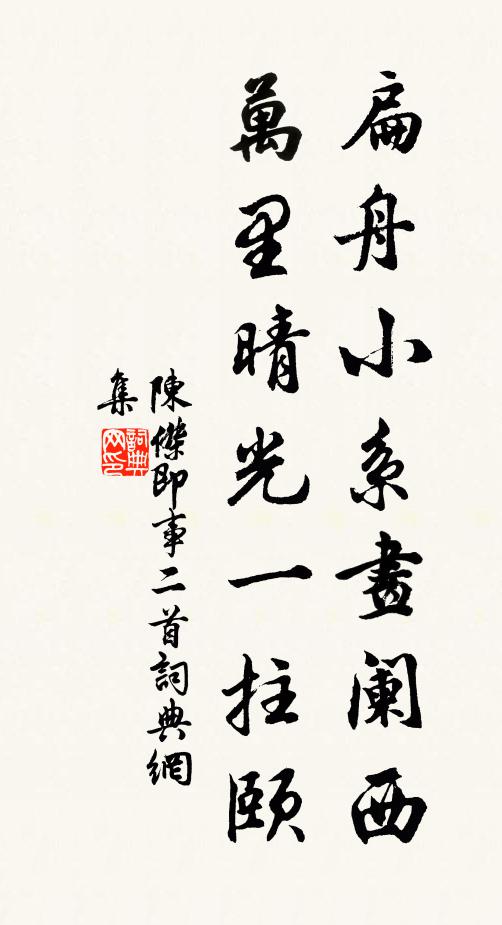 扁舟小系畫阑西
萬里晴光一拄頤
陳傑即事二首詞典網
集
詞典
网印